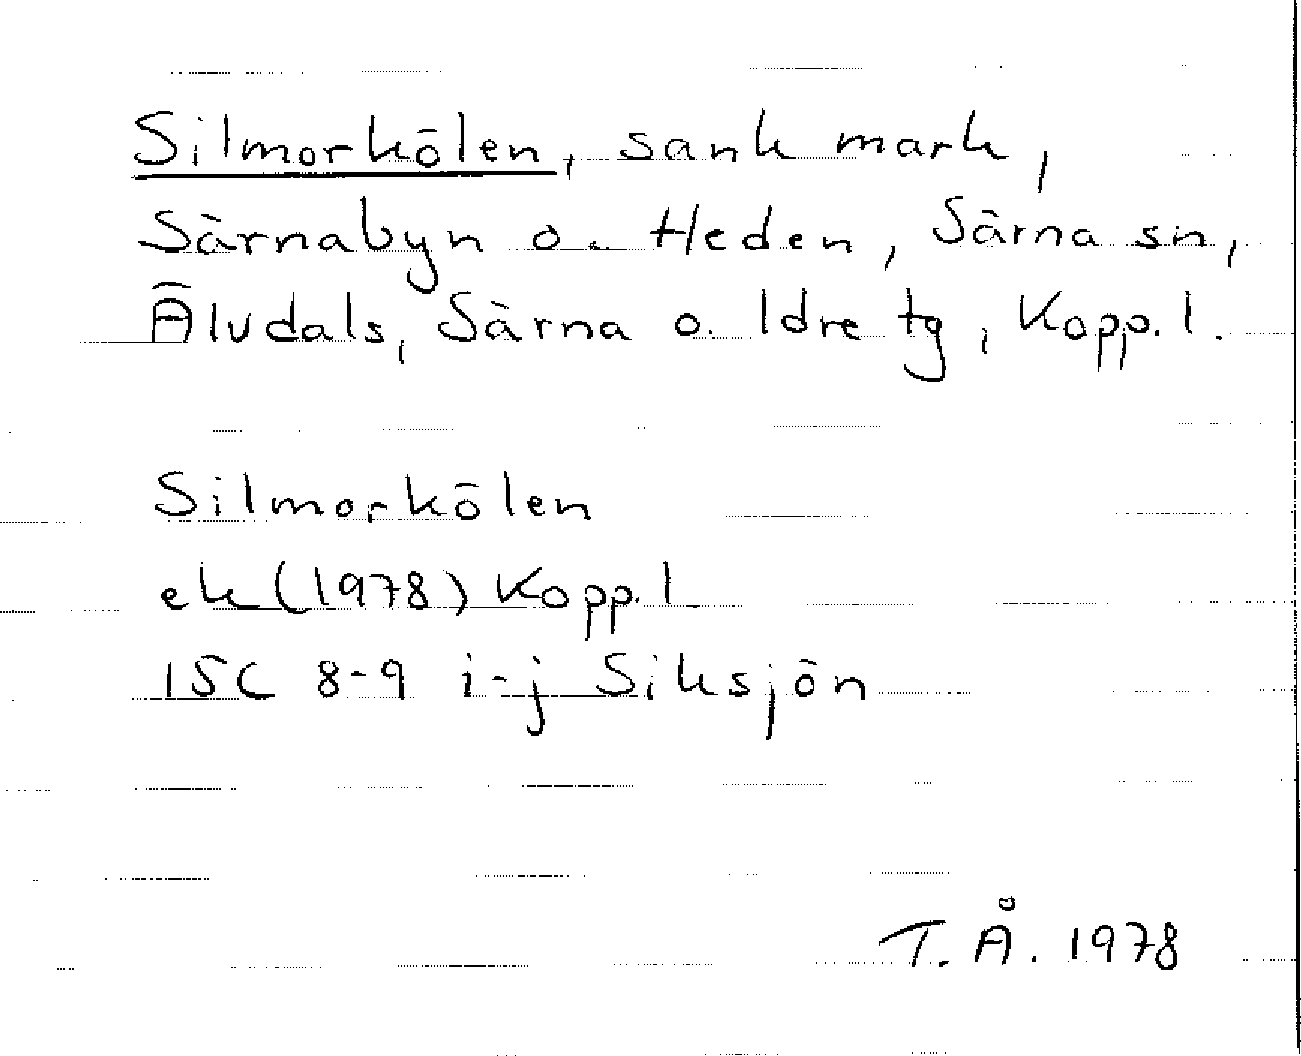 Silmorkölen, sank mark,
Särnabyn o. Heden, Särna sn,
Älvdals, Särna o. Idre tg, Kopp. l.
Silmorkölen
ek (1978) Kopp. l
15C 8-9 i-j Siksjön
T. Å. 1978